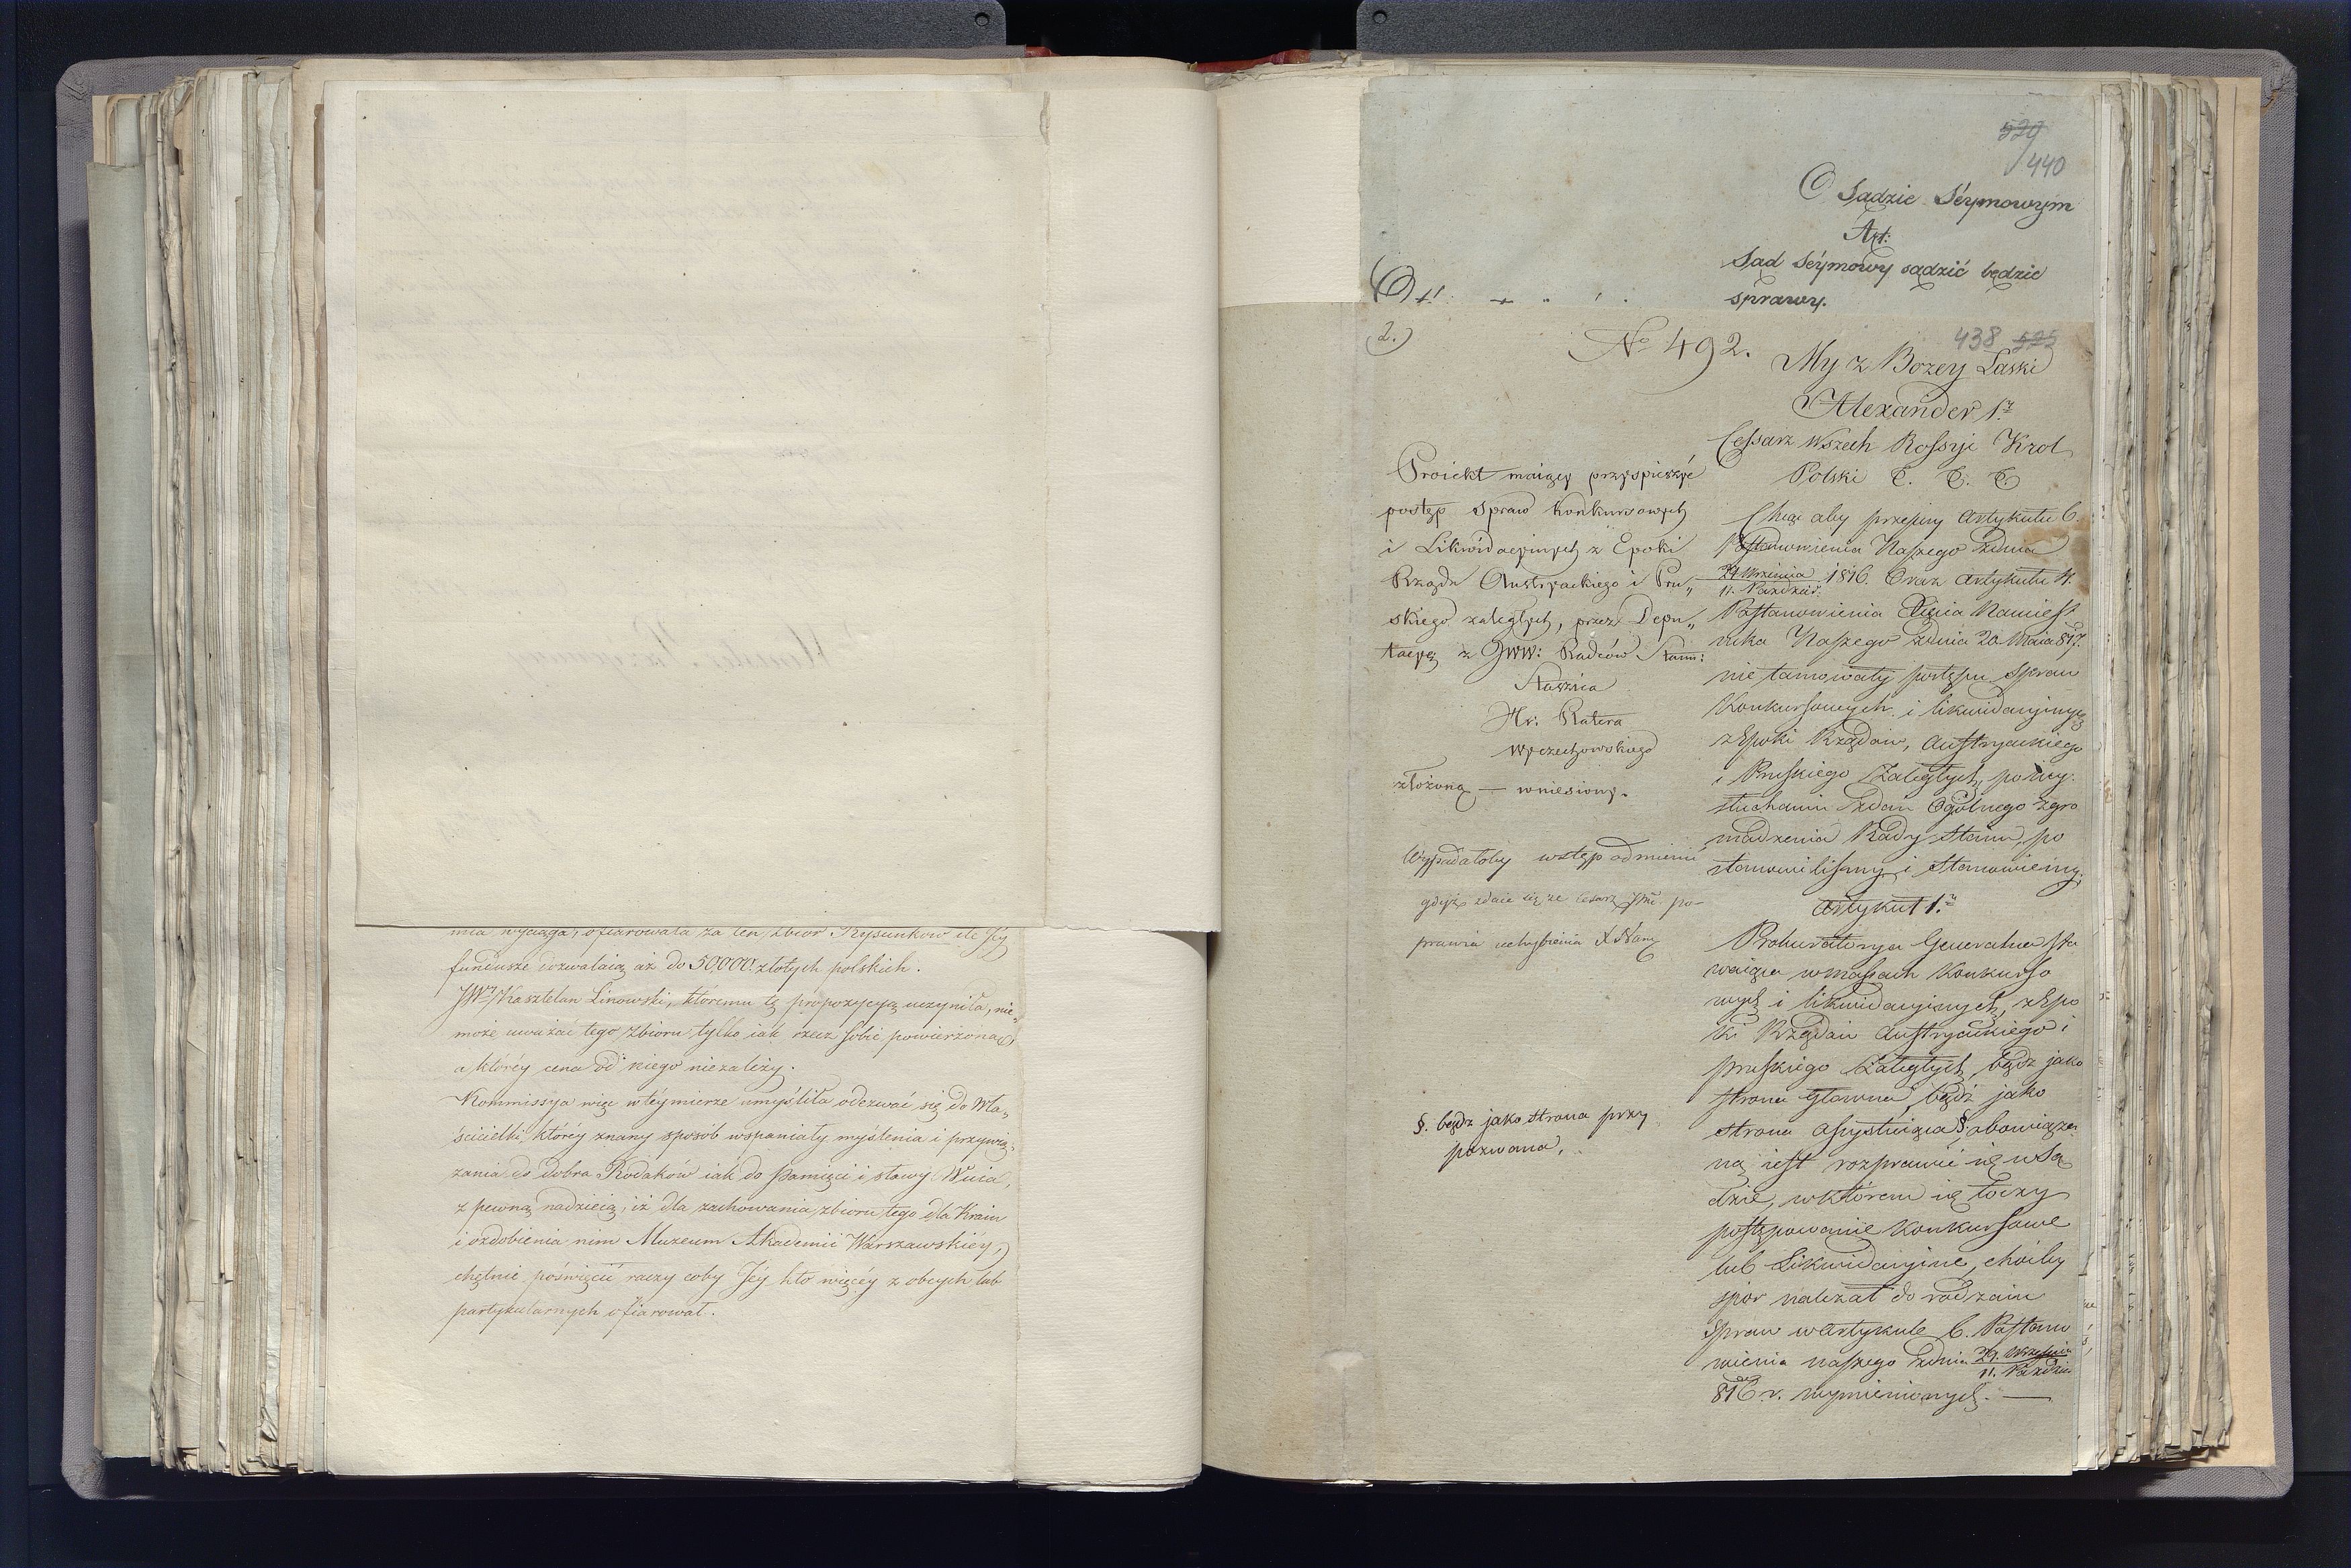 nia wyciąga, ofiarowała za ten zbior Rysunkow ile Jéy
fundusze dozwalaią aż do 50,000 złotych polskich.
JWny Kasztelan Linowski, któremu tę propozycyą uczyniła, nie„
może uważać tego zbioru tylko iak rzecz sobie powierzoną
a któréy cena od niego niezależy.
Kommissya więc w téymierze umyśliła odezwać się do Wła„
ścicielki, któréy znany sposób wspaniały myślenia i przywią„
zania do dobra Rodaków iak do pamięci i sławy Wuia,
z pewną nadzieią, iż dla zachowania zbioru tego dla Kraiu
i ozdobienia nim Muzeum Akademii Warszawskiéy,
chętnie poświęcić raczy coby Jéy kto więcéy z obcych lub
partykularnych ofiarował.
440
O Sądzie Séymowym
Art:
Sąd Séymowy sądzić będzie
sprawy.
2.)
No 492.
438 525
My z Bozey Łaski
Alexander 1.
Cessarz Wszech Rossyi Krol
Polski &. &. &.
Proiekt maiący przyspieszyć
postęp Spraw konkursowych
i Likwidacyinych z Epoki
Rządu Austryackiego i Pru„
skiego zaległych, przez Depu„
tacyą z JWW: Radców Stanu:
Staszica
Hr: Platera
Wyczechowskiego
złożoną — wniesiony.
Wypadałoby wstęp odmienić
gdyż zdaie się ze Cesarz Jmć po-
prawia uchybienia X Nam
§. bądz jako strona przy
pozwana,
Chcąc aby przepisy Artykułu 6.
Postanowienia Naszego z dnia
29 Września / 11. Paździer. 1816. Oraz Artykułu 4.
Postanowienia Xięcia Namiest
nika Naszego z dnia 20 Maia 817.
nie tamowały postępu Spraw
Konkursowych i likwidacyinych
z Epoki Rządow, Austryackiego
i Pruskiego Zaległych, po wy:
słuchaniu Zdań Ogólnego zgro
madzenia Rady Stanu, po
stanowiliśmy i Stanowiemy;
Artykuł 1.
Prokuratorya Generalna sta
waiąca w massach Konkurso
wych i likwidacyinych, z Epo
ki Rządow Austryackiego i
pruskiego Zaległych, bądz jako
strona główna, bądź jako
strona assystuiąca §, obowiąza
ną iest rozprawić się w Są
dzie, w którem się toczy
postępowanie Konkursowe
lub Likwidacyine, choćby
spór należał do rodzaiu
Spraw w Artykule 6. Postano
wienia naszego z dnia 29. Września / 11. Paździer
816 r. wymienionych. —